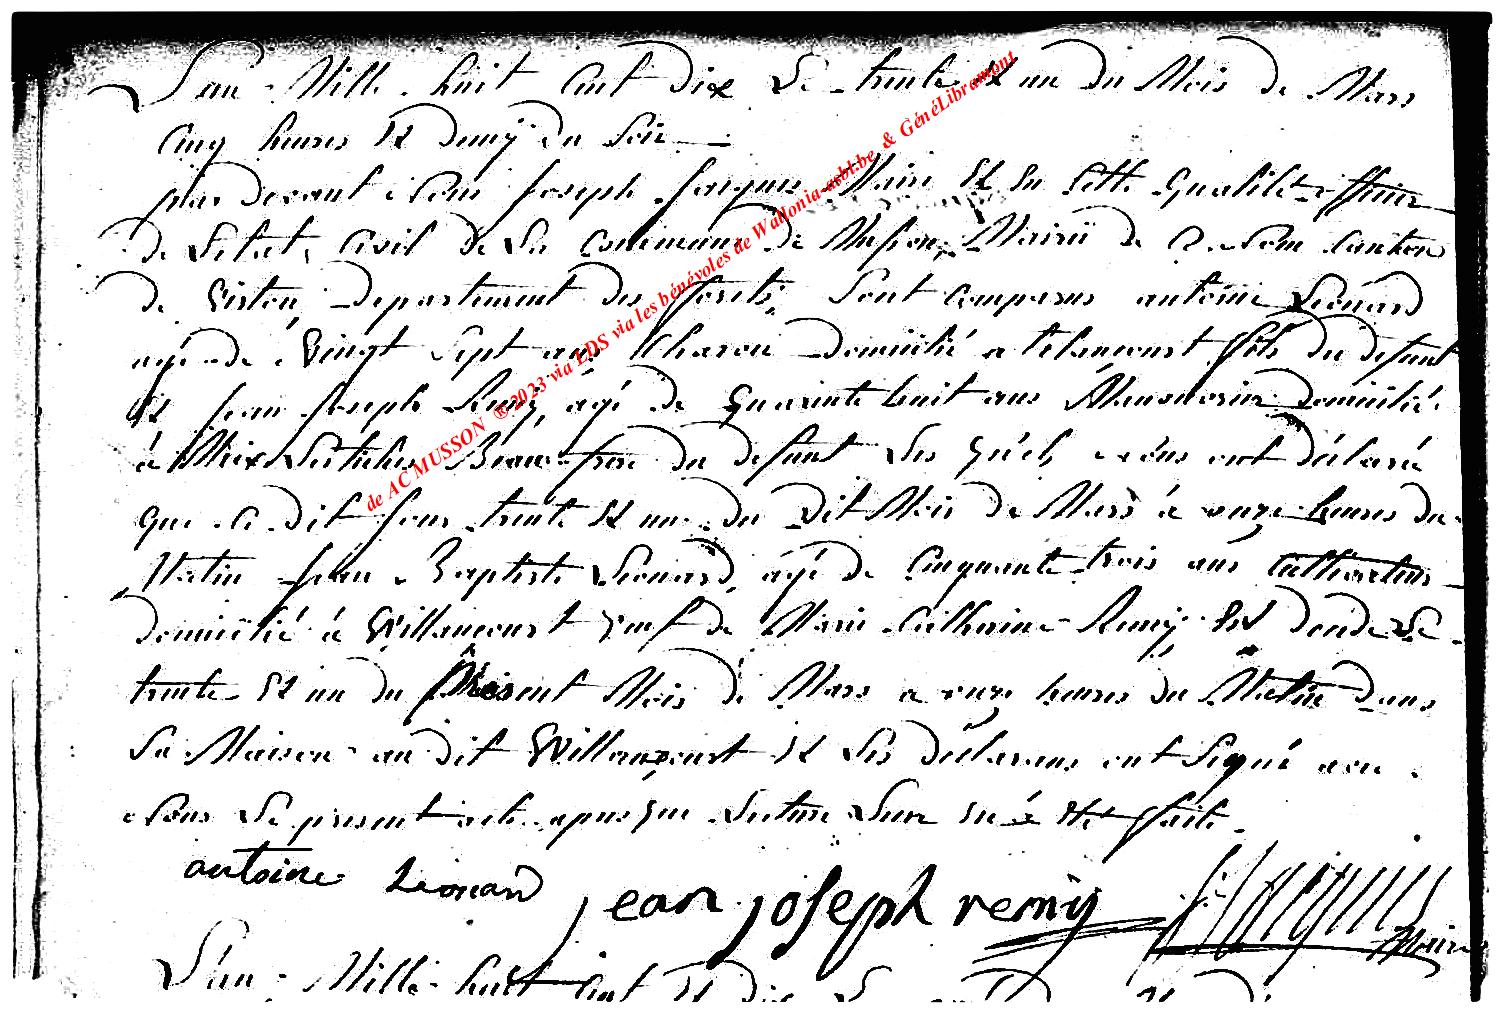 L'an Mille huit Cent Dix Le trente Et un Du Mois De Mars
Cinq heures Et Demÿ du Soir
par Devant Nous Joseph Jacques Maire Et En Cette Qualité officier
de L'Etat Civil de La Commune de Musson, Mairie de
de Virton, Departement des forêts, Sont Comparus antoine Leonard
agé de Vingt Sept ans Charon Domicilié a Wilancourt fils du defunt
Et Jean Joseph Remÿ, agé de Quarante huit ans Manoeuvrier domicilié
à Meix Beaufrere du defunt Les Quels Nous ont déclaré
que Ce Dit Jour trente Et un du Dit Mois De Mars à onze heures Du
Matin Jean Baptiste Leonard, agé de Cinquante trois ans Cultivateur
domicilié à Willancourt veuf de Marie Catherine Remÿ, Est Décédé Le
trente Et un du Present Mois de Mars a onze heures du Matin Dans
Sa Maison au dit Willancourt Et Les Déclarans ont Signé avec
Nous Le present acte apres que Lecture Leure En a Eté faite.
antoine Leonard jean joseph remÿ J Jacques
Maire
L'an Mille huit Cent Et dix Le
de AC MUSSON ®2023 via LDS via les bénévoles de Wallonia-asbl.be & GénéLibramont